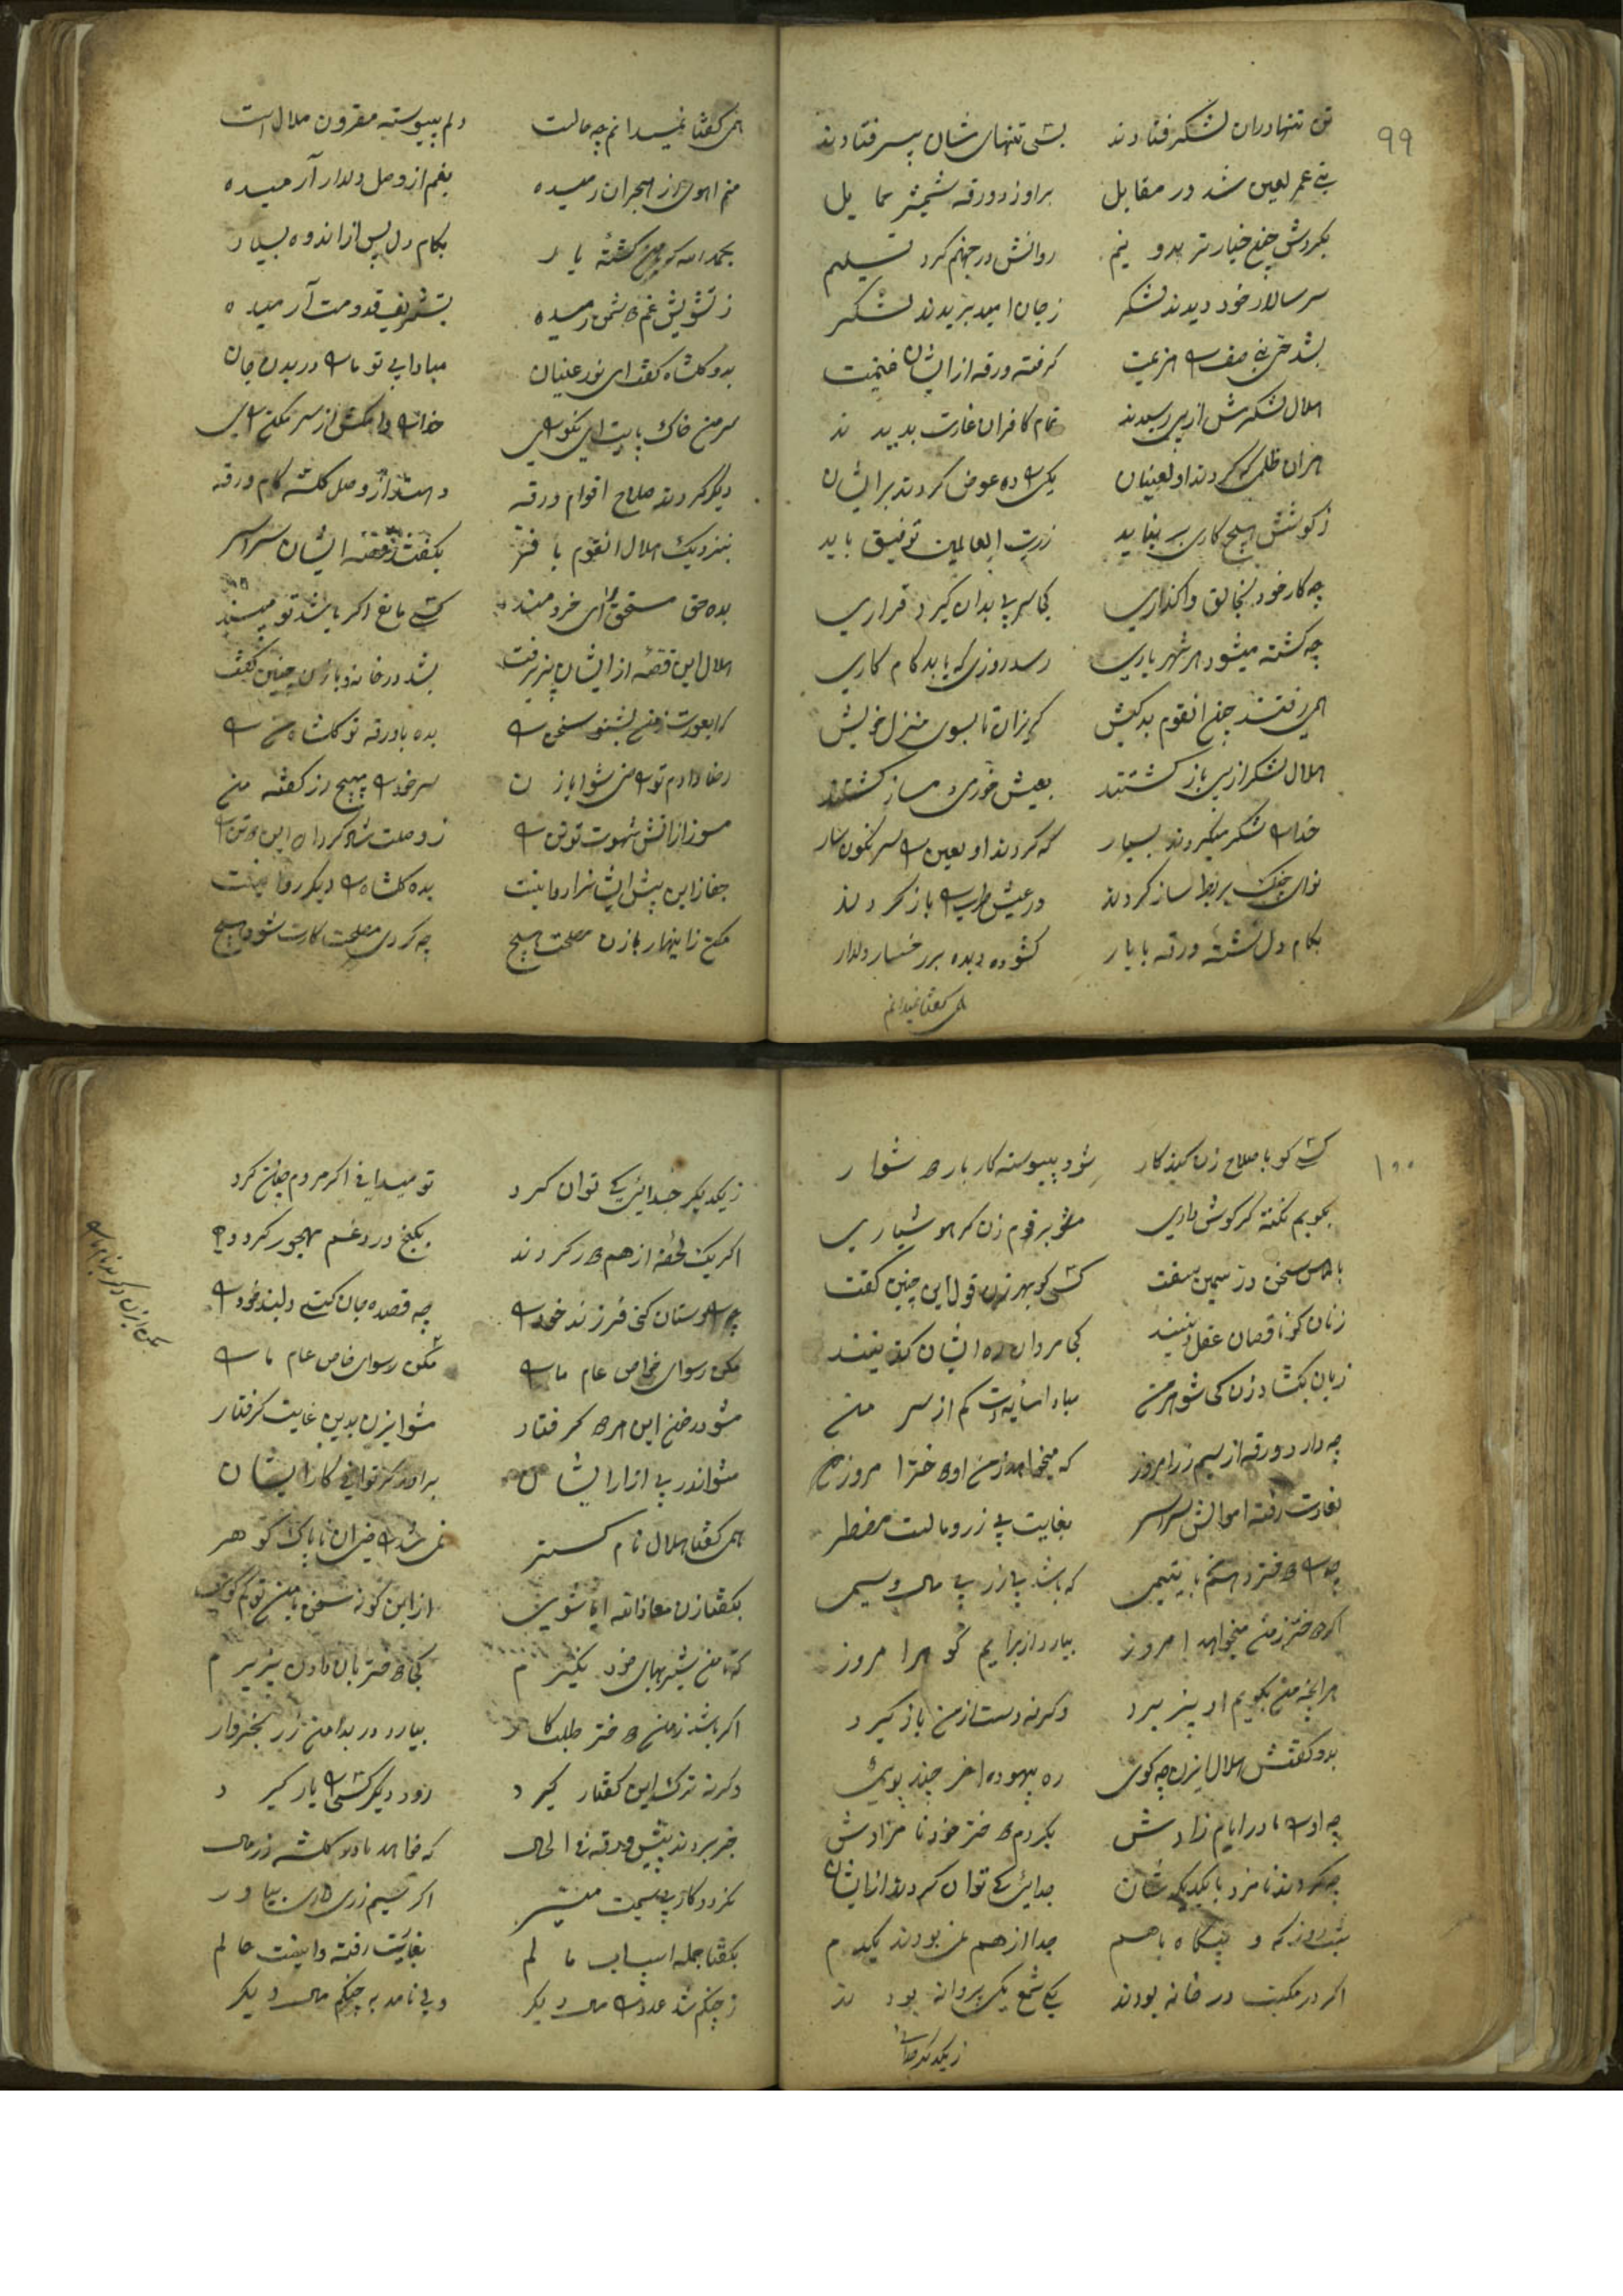 ۹۹
تن تنها دران لشکر فتادند بسی تنهای شان بیسر فتادند
بنی عمر لعین شد در مقابل براوزد ورقه شمشیر حمایل
بکردش چون خیار تر بدو نیم روانش در جهنم کرد تسلیم
سر سالار خود دیدند لشکر زجان امید ببریدند لشکر
کرفته ورقه از ایشان غنیمت
هلال لشکرش از پی رسیدند تمام کافران غارت بدیدند
هران ظلمی که کردند او لعینان یکی را ده عوض کردند بر ایشان
زکوشش هیچ کاری بر نیاید زرب العالمین توفیق باید
چه کار خود بخالق واکذاری
چه کشته میشود هر شهریاری رسد روزی که یابد کام کاری
همی رفتند چون انقوم بدکیش کریزان تا بسوی منزل خویش
هلال لشکر از پی باز کشتند بعیش خوری دمساز کشتند
خدا را شکر میکردند بسیار که کردند او لعین را سرنکون سار
نوای چنک بربط ساز کردند در عیش طرب را باز کردند
بکام دل نشسته ورقه با یار کشوده دیده بر رخسار دلدار
همی کفتا نمیدانم
همی کفتا نمیدانم چه حالت دلم پیوسته مقرون ملال است
منم اهوی از هجران رمیده بغم از وصل دلدار آرمیده
بحمدالله که من کشته یار بکام دل پس از اندوه بسیار
زتشویش غم دشمن رمیده بتشریف قدومت آرمیده
بدو کلشاه کفت ای نور عینان مبادا بی تو ما را در بدن جان
سر من خاک پایت ای نکو رای خدا را وا مکش از سر من پای
دیکر کردند صلاح اقوام ورقه دهند از وصل کلشه کام ورقه
بنزدیک هلال انقوم یا فر بکفتند قصه ایشان سراسر
بده حق مستحق را ای خردمند کسی مانع اکر باشد تو مپسند
هلال این قصه از ایشان پذیرفت بشد در خانه و با زن چنین کفت
که ای عورت زمن بشنو سخن را بده با ورقه تو کلشاه من را
رضا دادم تو راضی شو ایا زن سر خود را مپیچ از کفته من
مسوز از اتش شهوت تو تن را زوصلت شاد کردان این دو تن را
جفا زین بیش ایشانرا روا نیست بده کلشاه را دیکر روا نیست
مکن زنهار با زن مصلحت هیچ چه کردی مصلحت کارت شود هیچ
۱۰۰
کسی کو با صلاح زن کند کار شود پیوسته کار بار دشوار
بکویم نکته کر کوش داری مشو بر قوم زن کر هوشیاری
بالماس سخن در سیمین سفت کسی کو بهر زن قول این چنین کفت
زنان کو ناقصان عقل دینند کجا مردان ره ایشان کزینند
زبان بکشاد زن کی شوهر من مبادا سایه ات کم از سر من
چه دارد ورقه از سیم زر امروز که میخواهد زمن او دختر امروز
بغارت رفته اموالش سراسر بغایت بی زر و مالست مضطر
چه را دختر دهم با یتیمی که باشد بی زر بی مال و سیمی
اکر دختر زمن میخواهد امروز بیارد از برایم کوهر امروز
هرانچه من بکویم او پذیرد وکرنه دست از من باز کیرد
بدو کفتش هلال این زن چه کوی ره بیهوده اخر چند پویی
چه او را مادر ایام زادش بکردم دختر خود نامزادش
چه کردند نامزد با یکدیکر شان جدایی کی توان کردن از ایشان
شب روز که و بیکاه باهم جدا از هم نمی بودند یکدم
اکر در مکتب در خانه بودند یکی شمع یکی پروانه بودند
زیکدیکر جدایی
زیکدیکر جدایی کی توان کرد تو میدانی اکر مردم چنان کرد
اکر یک لحظه از هم دور کردند بکنج درد غم مهجور کردد
چرا دوستان کنی فرزند خود را چه قصد جان کنی دلبند خود را
مکن رسوای خواص عام ما را مکن رسوای خاص عام ما را
مشو در خون این هر دو کرفتار مشو این زن بدین غایت کرفتار
مشو اندر پی ازار ایشان براور کر توانی کار ایشان
همی کفتا هلال نام کستر نمی شد راضی ان ناپاک کوهر
بکفتا زن معاذالله ایا شوی از این کونه سخن با من تو کم کوی
که تا من شیر بهای خود نکیرم کجا دختر بان دادن پذیرم
اکر باشد زمن دختر طلبکار بیارد در بدامن زر بخروار
وکرنه ترک این کفتار کیرد رود دیکر کسی را یار کیرد
خبر بردند پیش ورقه فی الحال که خواهد مادر کلشه زر مال
نکردد کار بی سیمت میسر اکر سیم زری داری بیاور
بکفتا جمله اسباب مالم بغارت رفته دانیست حالم
زچنکم شد عدو را مال دیکر ولی نامد به چنکم مال دیکر